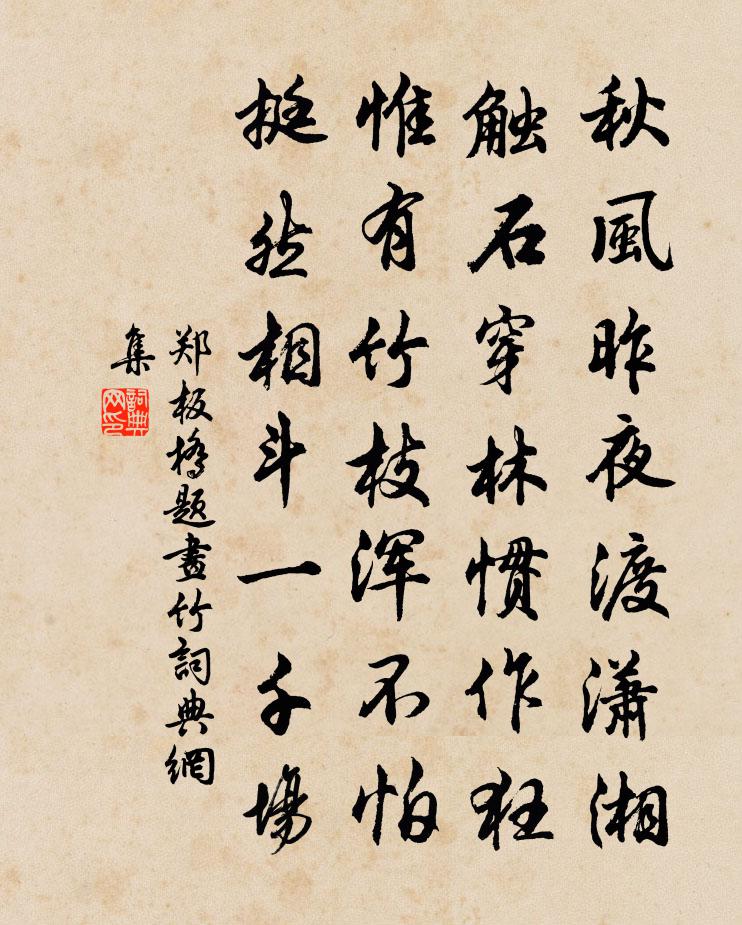 秋風昨夜渡瀟湘
觸石穿林慣作狂
惟有竹枝浑不怕
挺然相斗一千場
郑板橋題畫竹詞典網
集
詞典
网印